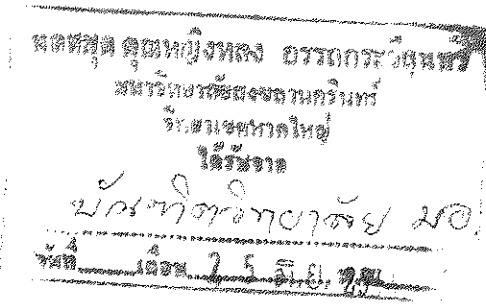 หอสมุด คุณหญิงหลง อรรถกระวีสุนทร
มหาวิทยาลัยสงขลานครินทร์
วิทยาเขตหาดใหญ่
ได้รับจาก
บัณฑิตวิทยาลัย มอ.
วันที่ เดือน 2 5 มิ.ย.